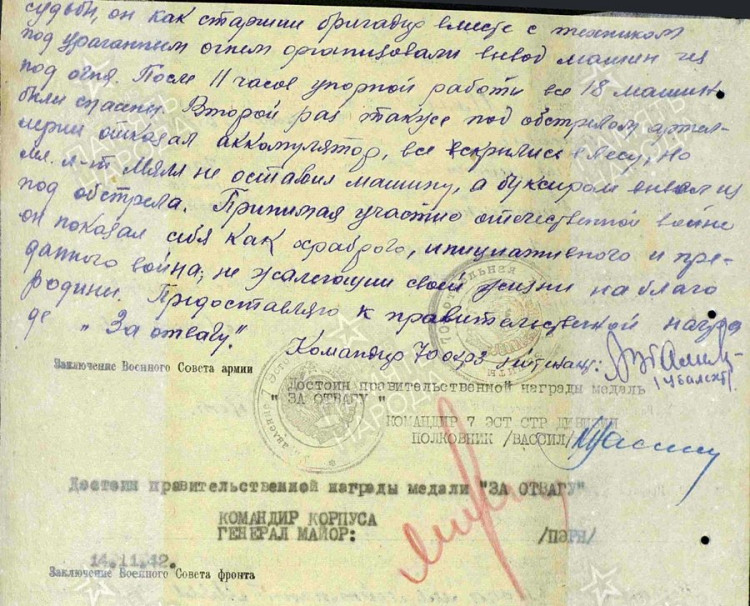 судьбы, он как старший бригадир вместе с техником
под ураганным огнем организовали вывод машин из
под огня. После 11 часов упорной работы все 18 машин
были спасены. Второй раз также под обстрелом артил-
лерии отказал аккомулятор, все вскрылись в лесу, но
мл. л-т Мялл не оставил машину, а буксиром вывел из
под обстрела. Принимая участие отечественной войне
он показал себя как храброго, инициативного и пре-
данного война, не жалеющии своей жизни на благо
родины. Предоставляю к правительственной награ
де "За отвагу".
Командир 70 лейтенант:
Заключение Военного Совета армии
Достоин правительственной награды медаль
" ЗА ОТВАГУ "
КОМАНДИР 7 ЭСТ СТР ДИВИЗИИ
ПОЛКОВНИК /ВАССИЛ/
Достоин правительственной награды медали "ЗА ОТВАГУ"
КОМАНДИР КОРПУСА
ГЕНЕРАЛ МАЙОР: /ПЭРН/
14.11.42.
Заключение Военного Совета фронта
ПАМЯТЬ
НАРОДА